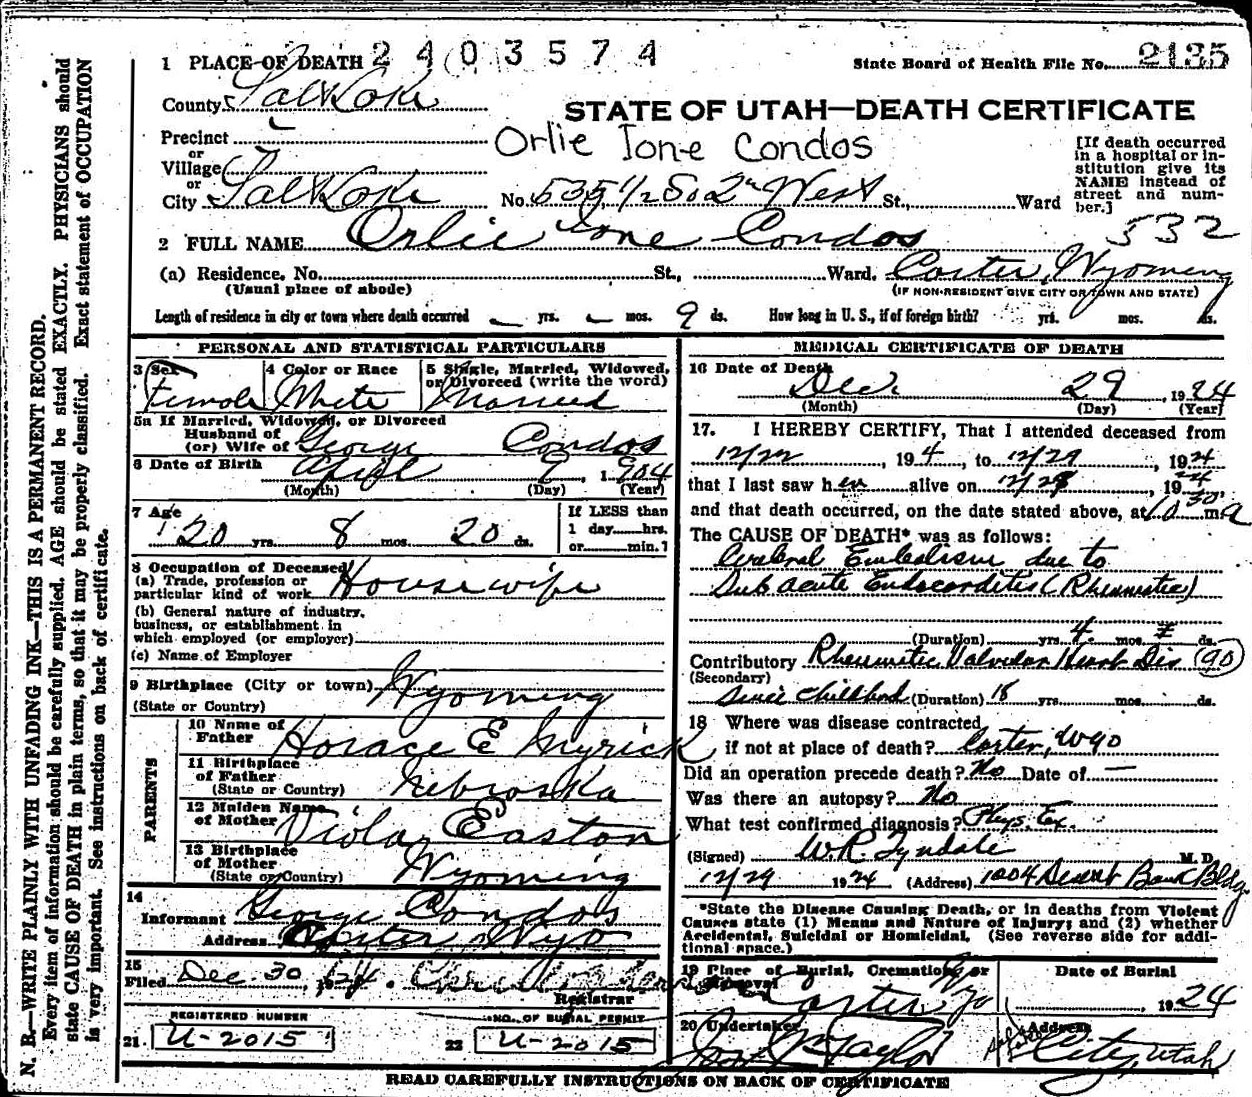 1 PLACE OF DEATH 2403574
State Board of Health File No. 2135
County Salt Lake
STATE OF UTAH—DEATH CERTIFICATE
Precinct
Orlie Ione Condos
or
Village
or
City Salt Lake No. 535 1/2 So 2nd West St., Ward
[If death occurred
in a hospital or in-
stitution give its
NAME instead of
street and num-
ber.]
532
2 FULL NAME Orlie Ione Condos
(a) Residence. No. St., Ward. Carter, Wyoming
(Usual place of abode) (IF NON-RESIDENT GIVE CITY OR TOWN AND STATE)
Length of residence in city or town where death occurred — yrs. — mos. 9 ds. How long in U. S., if of foreign birth? yrs. mos. ds.
PERSONAL AND STATISTICAL PARTICULARS
3 Sex
Female
4 Color or Race
White
5 Single, Married, Widowed,
or Divorced (write the word)
Married
5a If Married, Widowed, or Divorced
Husband of
(or) Wife of George Condos
6 Date of Birth April 9, 1904
(Month) (Day) (Year)
7 Age
20 yrs. 8 mos. 20 ds.
If LESS than
1 day hrs.
or min.
8 Occupation of Deceased
(a) Trade, profession or
particular kind of work Housewife
(b) General nature of industry,
business, or establishment in
which employed (or employer)
(c) Name of Employer
9 Birthplace (City or town) Wyoming
(State or Country)
PARENTS
10 Name of
Father Horace E Myrick
11 Birthplace
of Father
(State or Country) Nebraska
12 Maiden Name
of Mother Viola Easton
13 Birthplace
of Mother
(State or Country) Wyoming
14
Informant George Condos
Address Carter Wyo
15
Filed Dec 30, 1924.
Registrar
REGISTERED NUMBER
21. U-2015
NO. OF BURIAL PERMIT
22 U-2015
MEDICAL CERTIFICATE OF DEATH
16 Date of Death
Dec 29, 1924
(Month) (Day) (Year)
17. I HEREBY CERTIFY, That I attended deceased from
12/22, 1924, to 12/29, 1924
that I last saw her alive on 12/28, 1924
and that death occurred, on the date stated above, at 10 30 m a
The CAUSE OF DEATH* was as follows:
Cerebral Embolism due to
Sub acute Endocarditis (Rheumatic)
(Duration) yrs. 4 mos. ds.
Contributory Rheumatic Valvular Heart Dis (90)
(Secondary)
since childhood (Duration) 18 yrs. mos. ds.
18 Where was disease contracted
if not at place of death? Carter, Wyo
Did an operation precede death? No Date of —
Was there an autopsy? No
What test confirmed diagnosis? Phys. Ex.
(Signed) W.R. Tyndale M.D.
12/29 1924 (Address) 1004 Deseret Bank Bldg
*State the Disease Causing Death, or in deaths from Violent
Causes state (1) Means and Nature of Injury; and (2) whether
Accidental, Suicidal or Homicidal. (See reverse side for addi-
tional space.)
19 Place of Burial, Cremation, or
Removal
Carter Wyo
Date of Burial
1924
20 Undertaker
Taylor
Address
Salt Lake City, Utah
READ CAREFULLY INSTRUCTIONS ON BACK OF CERTIFICATE
N. B.—WRITE PLAINLY WITH UNFADING INK—THIS IS A PERMANENT RECORD.
Every item of information should be carefully supplied. AGE should be stated EXACTLY. PHYSICIANS should
state CAUSE OF DEATH in plain terms, so that it may be properly classified. Exact statement of OCCUPATION
is very important. See instructions on back of certificate.